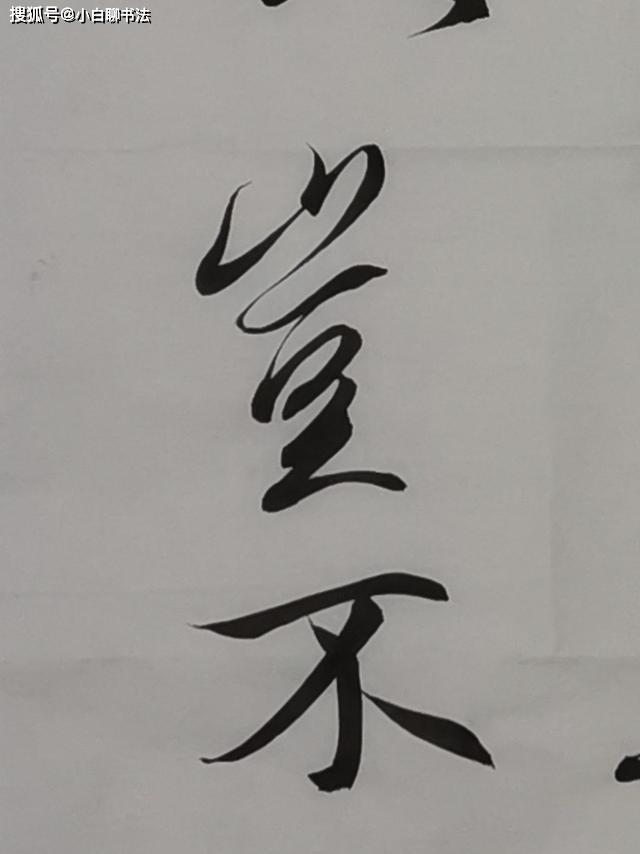 搜狐号@小白聊书法
豈
不